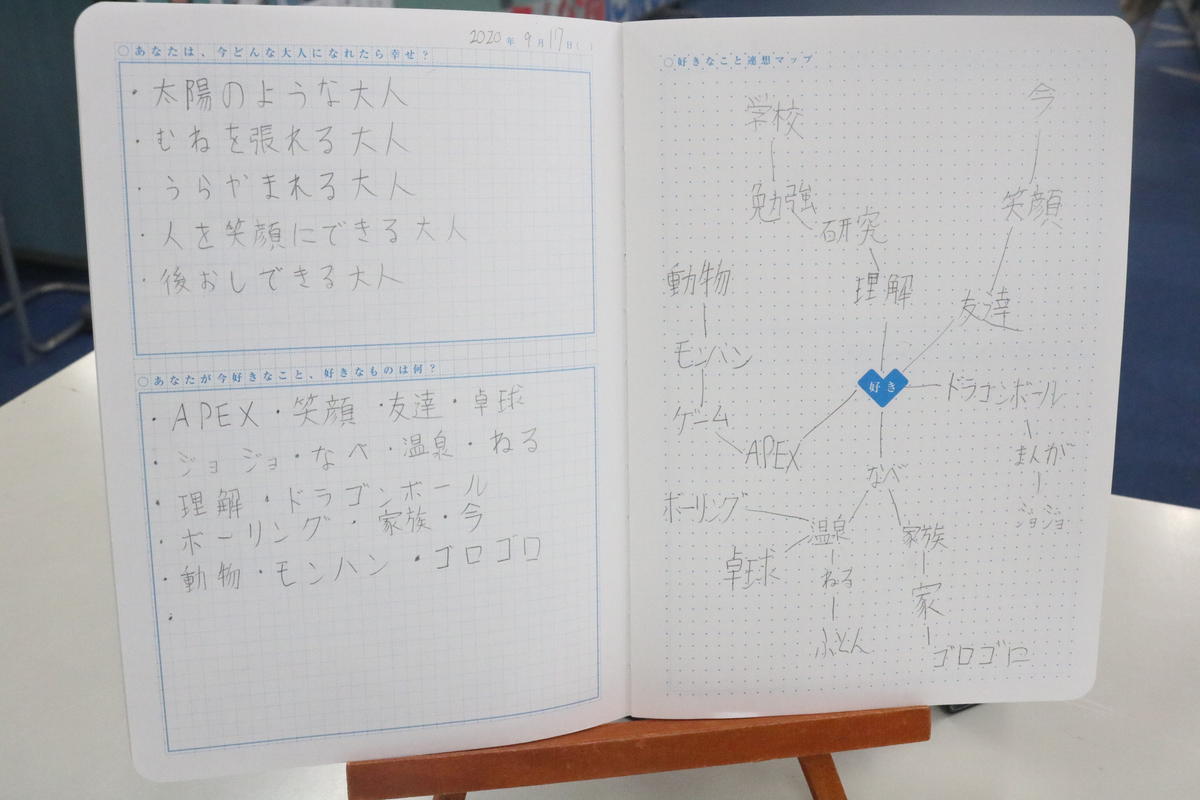 2020年9月17日( )
○あなたは、今どんな大人になれたら幸せ？
・太陽のような大人
・むねを張れる大人
・うらやまれる大人
・人を笑顔にできる大人
・後おしできる大人
○あなたが今好きなこと、好きなものは何？
・APEX・笑顔・友達・卓球
・ジョジョ・なべ・温泉・ねる
・理解・ドラゴンボール
・ボーリング・家族・今
・動物・モンハン・ゴロゴロ
・
○好きなこと連想マップ
学校
今
勉強
笑顔
研究
動物
理解
友達
モンハン
好き
ドラゴンボール
ゲーム
APEX
まんが
なべ
ボーリング
ジョジョ
温泉
家族
卓球
ねる
家
ふとん
ゴロゴロ